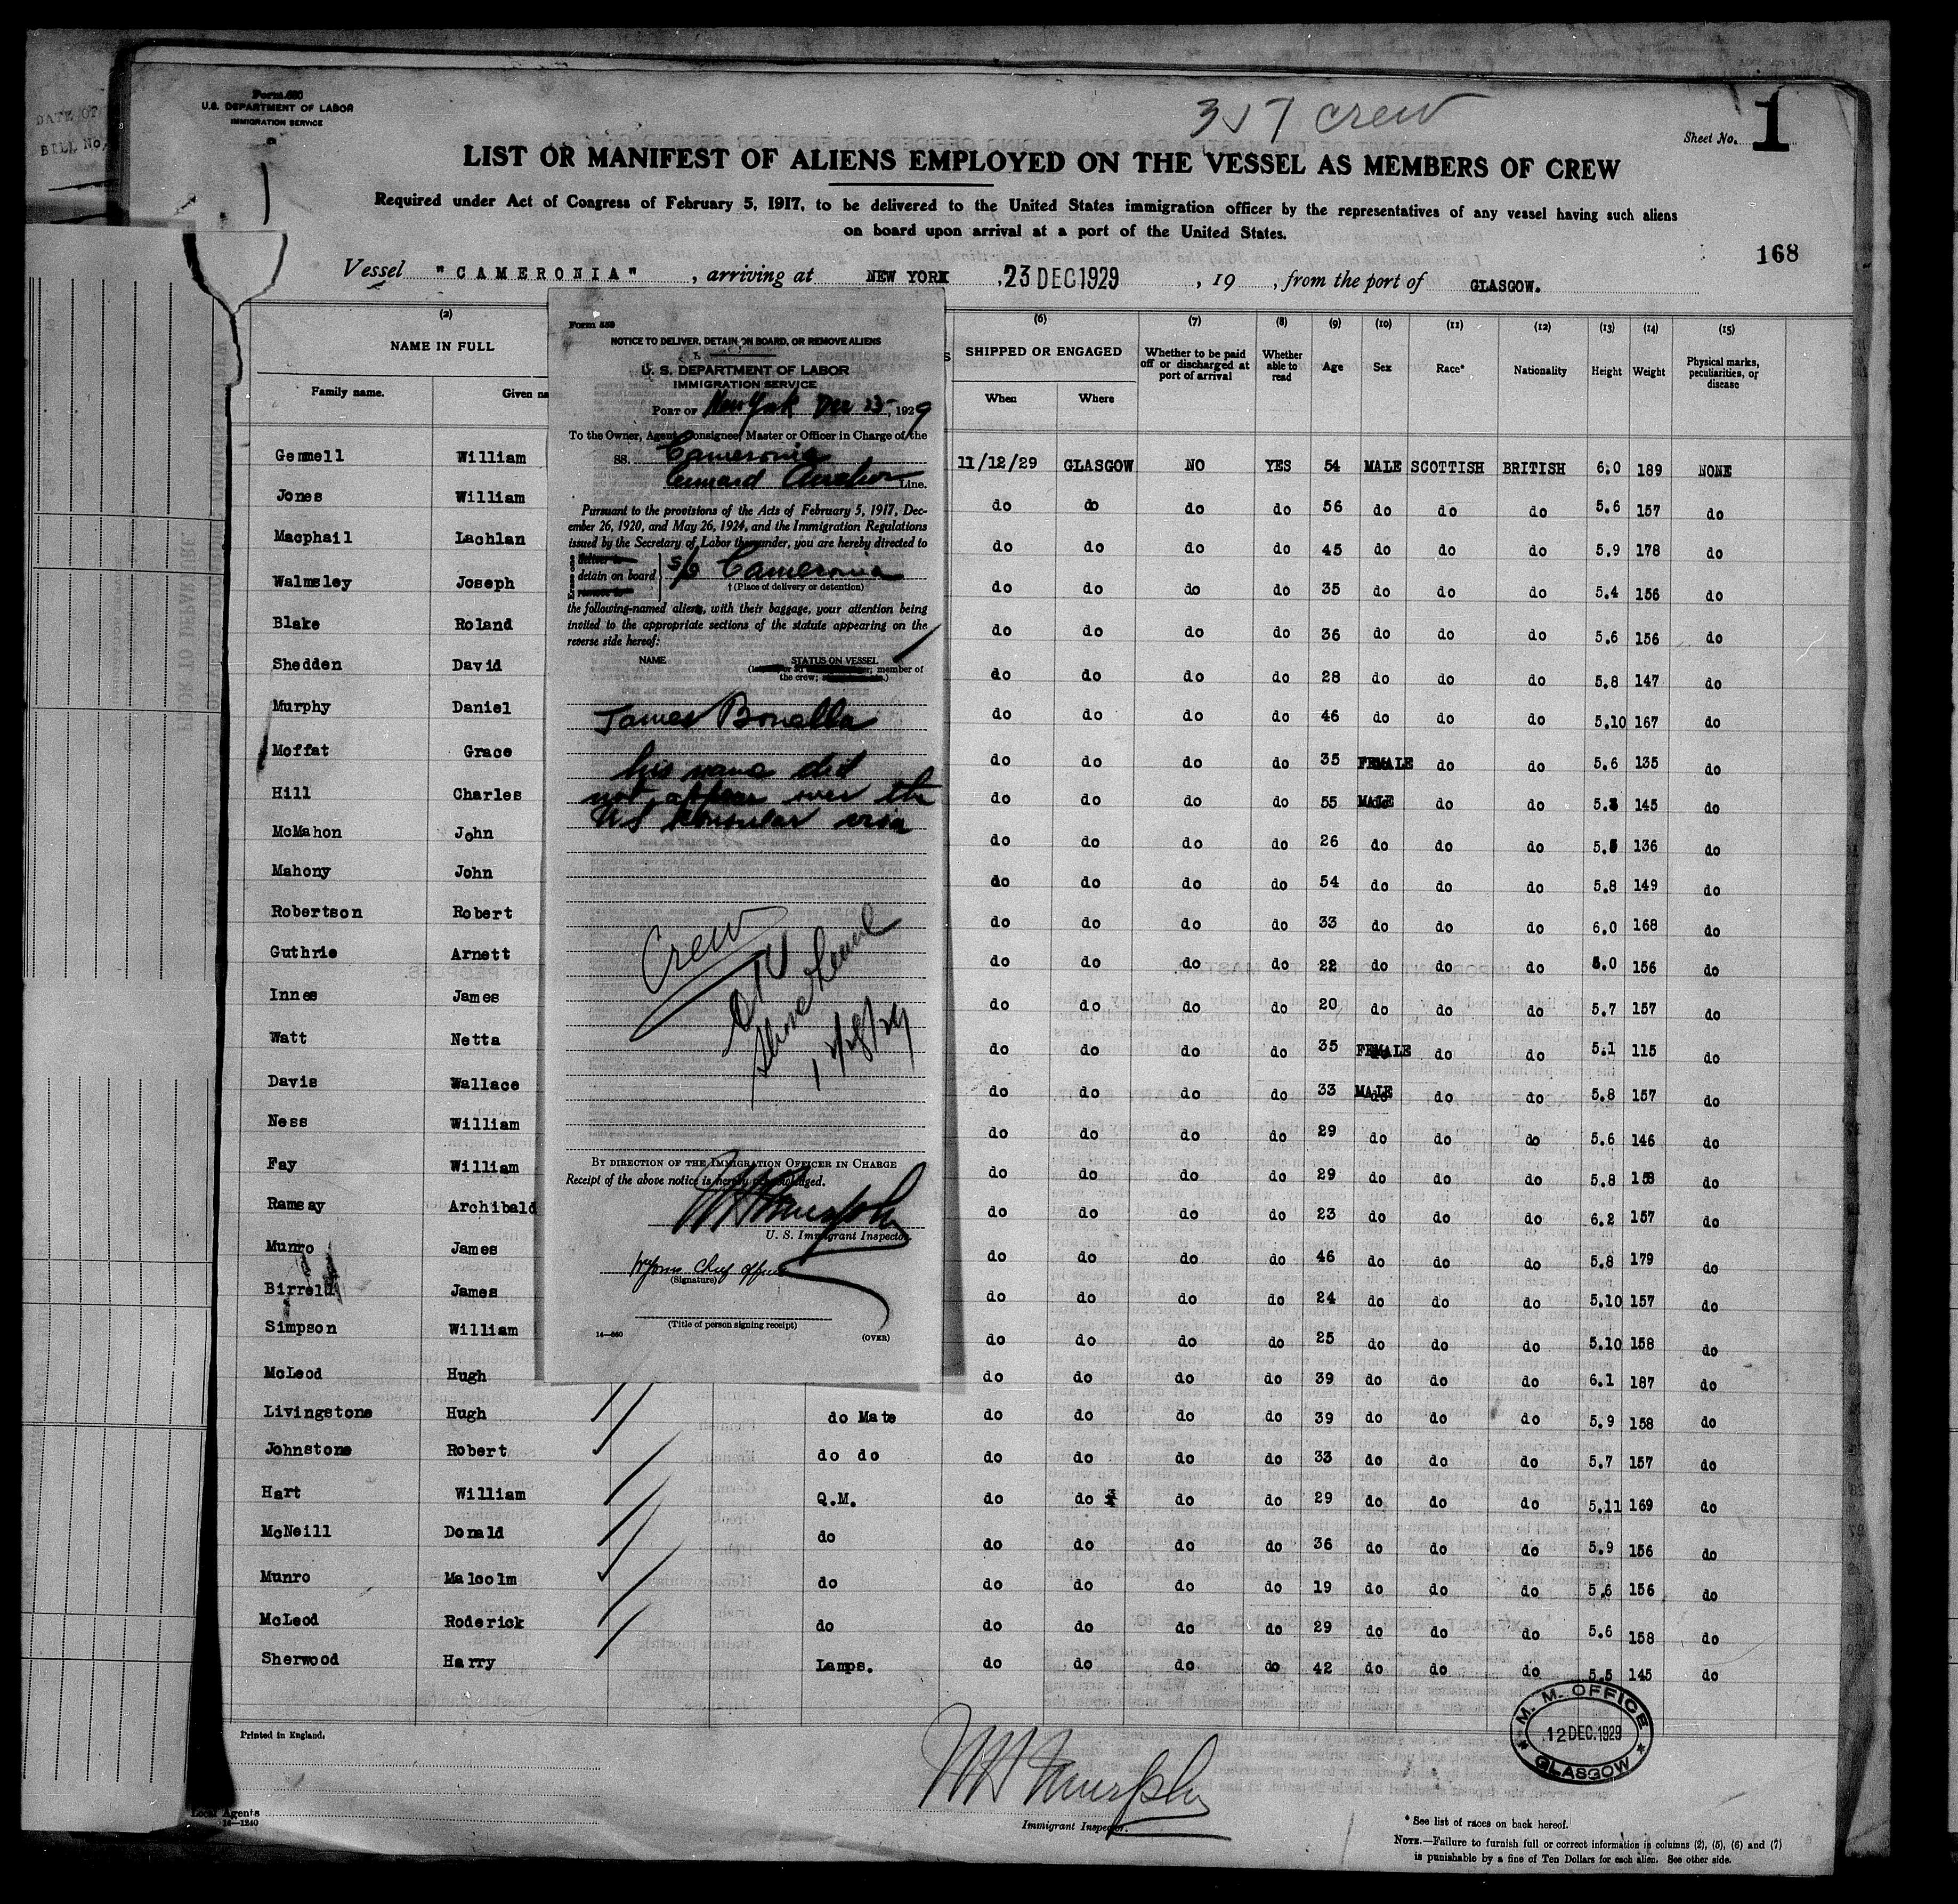 Form 680
U.S. DEPARTMENT OF LABOR
IMMIGRATION SERVICE
DATE OF
BILL No.
317 crew
Sheet No. 1
LIST OR MANIFEST OF ALIENS EMPLOYED ON THE VESSEL AS MEMBERS OF CREW
Required under Act of Congress of February 5, 1917, to be delivered to the United States immigration officer by the representatives of any vessel having such aliens
on board upon arrival at a port of the United States.
168
Vessel "CAMERONIA", arriving at NEW YORK, 23 DEC 1929, 19 , from the port of GLASGOW.
(2) (6) (7) (8) (9) (10) (11) (12) (13) (14) (15)
NAME IN FULL SHIPPED OR ENGAGED Whether to be paid off or discharged at port of arrival Whether able to read Age Sex Race* Nationality Height Weight Physical marks, peculiarities, or disease
Family name. Given na When Where
Gemmell William 11/12/29 GLASGOW NO YES 54 MALE SCOTTISH BRITISH 6.0 189 NONE
Jones William do do do do 56 do do do 5.6 157 do
Macphail Lachlan do do do do 45 do do do 5.9 178 do
Walmsley Joseph do do do do 35 do do do 5.4 156 do
Blake Roland do do do do 36 do do do 5.6 156 do
Shedden David do do do do 28 do do do 5.8 147 do
Murphy Daniel do do do do 46 do do do 5.10 167 do
Moffat Grace do do do do 35 FEMALE do do 5.6 135 do
Hill Charles do do do do 55 MALE do do 145 do
McMahon John do do do do 26 do do do 136 do
Mahony John do do do do 54 do do do 5.8 149 do
Robertson Robert do do do do 33 do do do 6.0 168 do
Guthrie Arnett do do do do 22 do do do 156 do
Innes James do do do do 20 do do do 5.7 157 do
Watt Netta do do do do 35 FEMALE do do 5.1 115 do
Davis Wallace do do do do 33 MALE do do 5.8 157 do
Ness William do do do do 29 do do do 5.6 146 do
Fay William do do do do 29 do do do 5.8 158 do
Ramsay Archibald do do do do 23 do do do 6.2 157 do
Munro James do do do do 46 do do do 5.8 179 do
Birrell James do do do do 24 do do do 5.10 157 do
Simpson William do do do do 25 do do do 5.10 158 do
McLeod Hugh do do do do 39 do do do 6.1 187 do
Livingstone Hugh do Mate do do do do 39 do do do 5.9 158 do
Johnstone Robert do do do do do do 33 do do do 5.7 157 do
Hart William Q.M. do do do do 29 do do do 5.11 169 do
McNeill Donald do do do do do 36 do do do 5.9 156 do
Munro Malcolm do do do do do 19 do do do 5.6 156 do
McLeod Roderick do do do do do 29 do do do 5.6 158 do
Sherwood Harry Lamps. do do do do 42 do do do 5.5 145 do
Form 559
NOTICE TO DELIVER, DETAIN ON BOARD, OR REMOVE ALIENS
U. S. DEPARTMENT OF LABOR
IMMIGRATION SERVICE
PORT OF New York Dec 23, 1929
To the Owner, Agent, Consignee, Master or Officer in Charge of the
SS. Cameronia
Cunard Anchor Line.
Pursuant to the provisions of the Acts of February 5, 1917, Dec-
ember 26, 1920, and May 26, 1924, and the Immigration Regulations
issued by the Secretary of Labor thereunder, you are hereby directed to
Erase one deliver to
detain on board
remove to
s/s Cameronia
†(Place of delivery or detention)
the following-named aliens, with their baggage, your attention being
invited to the appropriate sections of the statute appearing on the
reverse side hereof:
NAME STATUS ON VESSEL
member of
the crew;
James Bonella
his name did
not appear over the
US Consular visa
Crew
OK
12/28/29
BY DIRECTION OF THE IMMIGRATION OFFICER IN CHARGE
Receipt of the above notice is hereby acknowledged.
U. S. Immigrant Inspector.
Chief Officer
(Signature)
(Title of person signing receipt)
14—660 (OVER)
Printed in England.
Local Agents
14—1240
Immigrant Inspector.
M. M. OFFICE
12 DEC. 1929
GLASGOW
* See list of races on back hereof.
NOTE.—Failure to furnish full or correct information in columns (2), (5), (6) and (7)
is punishable by a fine of Ten Dollars for each alien. See other side.